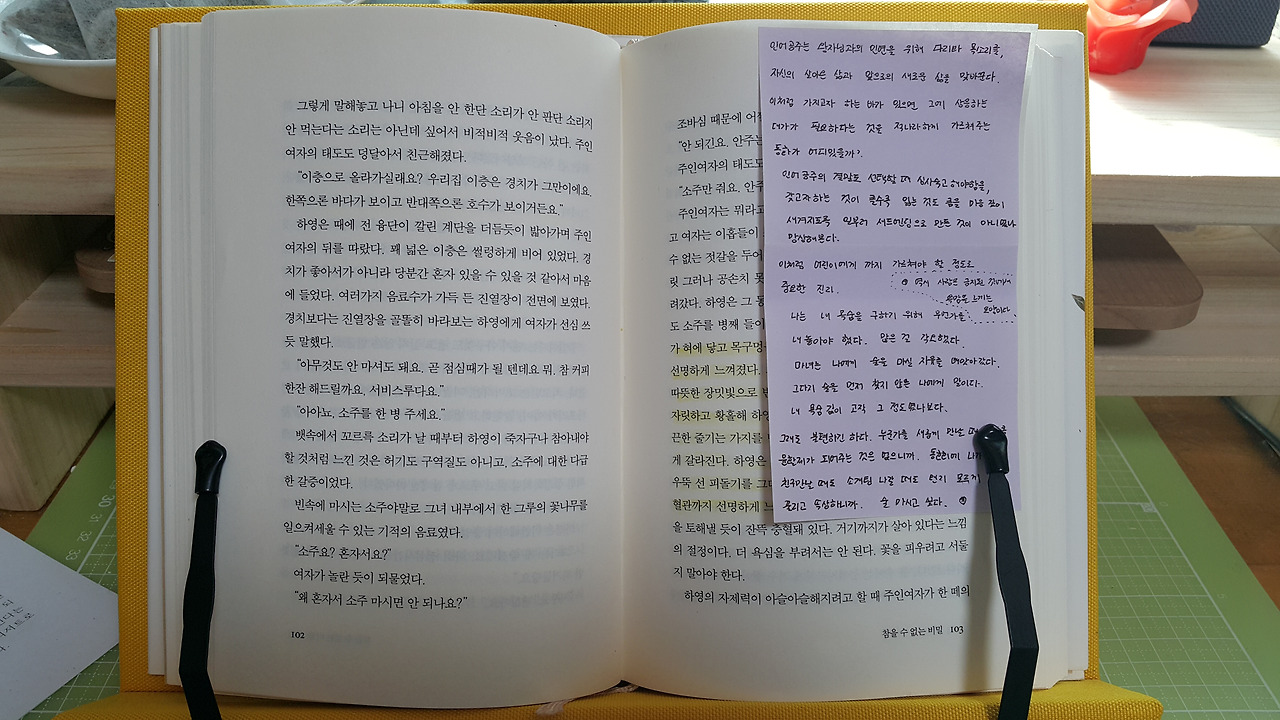 그렇게 말해놓고 나니 아침을 안 한단 소리가 안 판단 소리지
안 먹는다는 소리는 아닌데 싶어서 비적비적 웃음이 났다. 주인
여자의 태도도 덩달아서 친근해졌다.
"이층으로 올라가실래요? 우리집 이층은 경치가 그만이에요.
한쪽으론 바다가 보이고 반대쪽으론 호수가 보이거든요."
하영은 때에 전 융단이 깔린 계단을 더듬듯이 밟아가며 주인
여자의 뒤를 따랐다. 꽤 넓은 이층은 썰렁하게 비어 있었다. 경
치가 좋아서가 아니라 당분간 혼자 있을 수 있을 것 같아서 마음
에 들었다. 여러가지 음료수가 가득 든 진열장이 전면에 보였다.
경치보다는 진열장을 골똘히 바라보는 하영에게 여자가 선심 쓰
듯 말했다.
"아무것도 안 마셔도 돼요. 곧 점심때가 될 텐데요 뭐. 참 커피
한잔 해드릴까요, 서비스루다요."
"아아뇨, 소주를 한 병 주세요."
뱃속에서 꼬르륵 소리가 날 때부터 하영이 죽자구나 참아내야
할 것처럼 느낀 것은 허기도 구역질도 아니고, 소주에 대한 다급
한 갈증이었다.
빈속에 마시는 소주야말로 그녀 내부에서 한 그루의 꽃나무를
일으켜세울 수 있는 기적의 음료였다.
"소주요? 혼자서요?"
여자가 놀란 듯이 되물었다.
"왜 혼자서 소주 마시면 안 되나요?"
102
조바심 때문에 어
"안 되긴요. 안주는
주인여자의 태도도
"소주만 줘요. 안주
주인여자는 뭐라고
고 여자는 이홉들이
수 없는 젓갈을 두어
릿 그러나 공손치 못
려갔다. 하영은 그 동
도 소주를 병째 들이
가 혀에 닿고 목구멍
선명하게 느껴졌다.
따뜻한 장밋빛으로
자릿하고 황홀해 하영
끈한 줄기는 가지를
게 갈라진다. 하영은
우뚝 선 피돌기를 그
혈관까지 선명하게
을 토해낼 듯이 잔뜩 충혈돼 있다. 거기까지가 살아 있다는 느낌
의 절정이다. 더 욕심을 부려서는 안 된다. 꽃을 피우려고 서둘
지 말아야 한다.
하영의 자제력이 아슬아슬해지려고 할 때 주인여자가 한 떼의
참을 수 없는 비밀 103
인어공주는 왕자님과의 인연을 위해 다리와 목소리를,
자신의 살아온 삶과 앞으로의 새로운 삶을 맞바꾼다.
이처럼 가지고자 하는 바가 있으면 그에 상응하는
대가가 필요하다는 것을 적나라하게 가르쳐주는
동화가 어디있을가?.
인어공주의 계약도 선택할 때 심사숙고 해야함을,
갖고자하는 것이 클수록 잃는 것도 큼을 마음 깊이
새겨지도록 일부러 새드엔딩으로 만든 것이 아니었나
망상해본다.
이처럼 어린이에게 까지 가르쳐야 할 정도로
중요한 진리.
역시 사람은 금지된 것에서
욕망을 느끼는
모양이다
나는 내 목숨을 구하기 위해 무언가를
내놓아야 했다. 많은 건 각오했다.
마녀는 나에게 술을 마실 자유를 빼앗아갔다.
그다지 술을 먼저 찾지 않는 나에게 말이다.
내 목숨 값이 고작 그 정도였나보다.
그래도 불편하긴 하다. 누군가를 새롭게 만날 때
윤활제가 되어주는 것은 없으니까.
친구만날 때도 소개팅 나갈 때도 먼지 모르게
졸리고 속상하니까. 술 마시고 싶다.